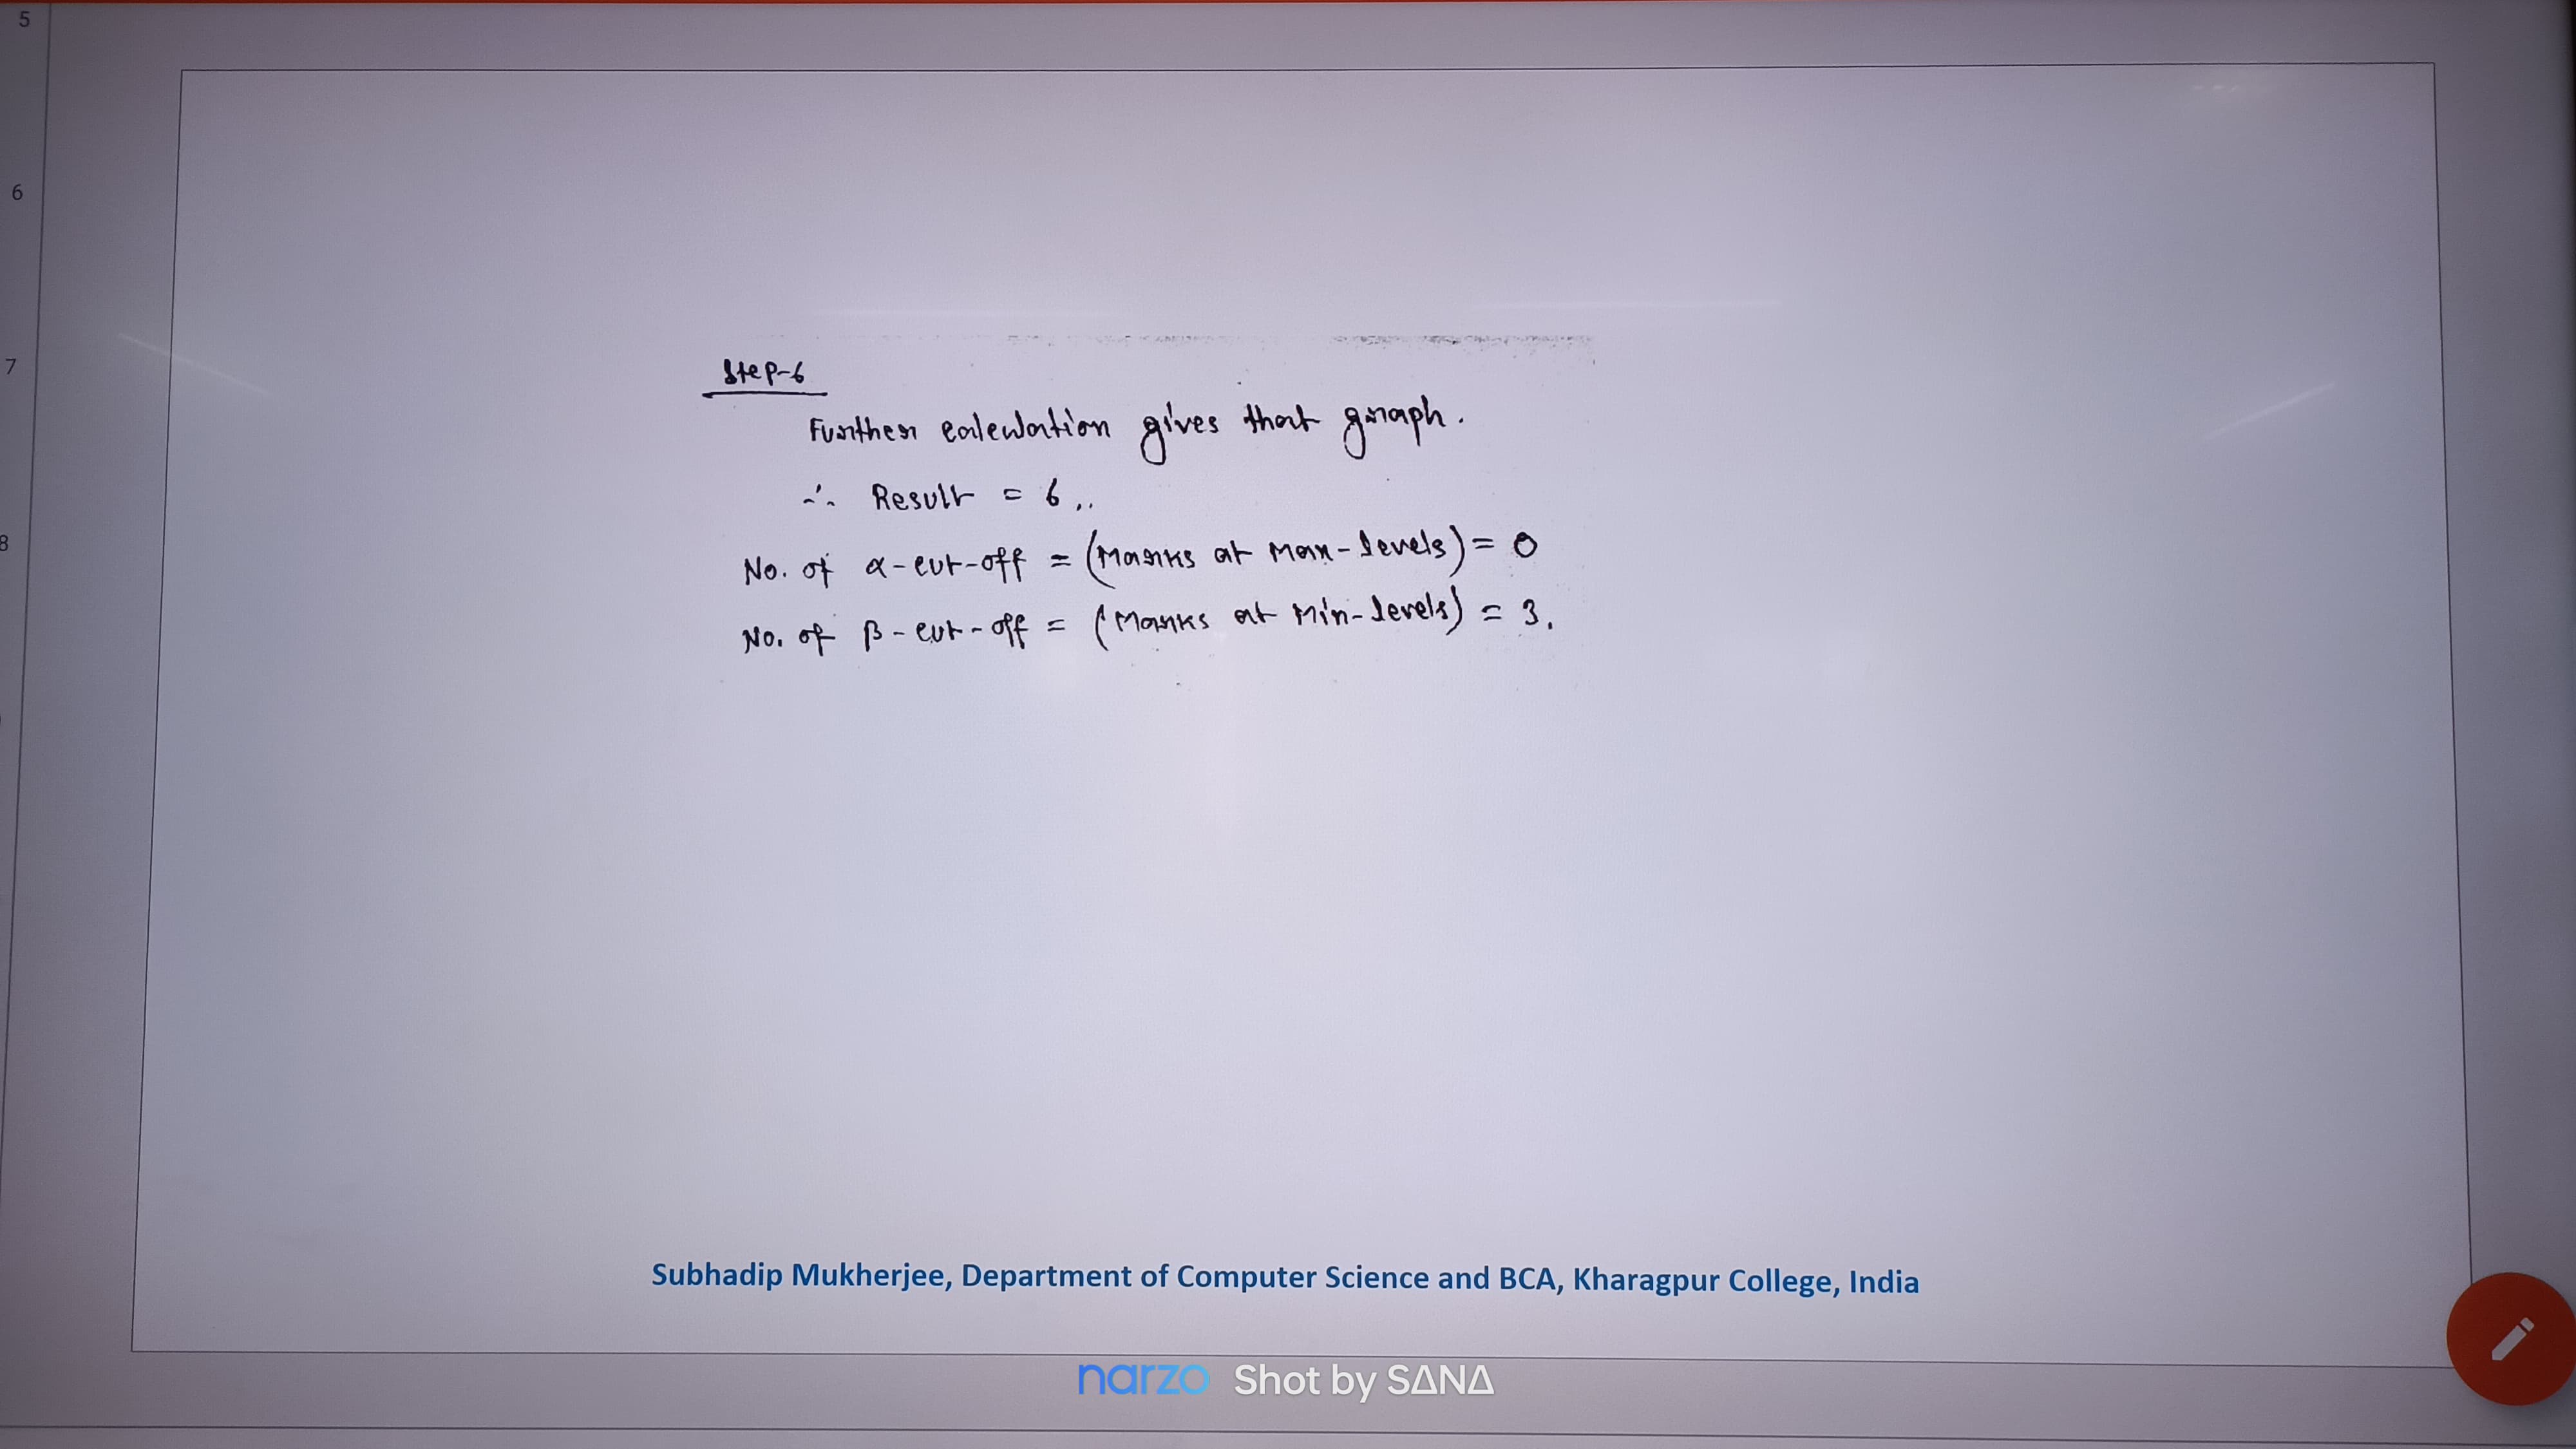 5
6
7
8
Step-6
Further calculation gives that graph.
∴ Result = 6,,
No. of α-cut-off = (Marks at Max-levels) = 0
No. of β-cut-off = (Marks at Min-levels) = 3.
Subhadip Mukherjee, Department of Computer Science and BCA, Kharagpur College, India
narzo Shot by SANA